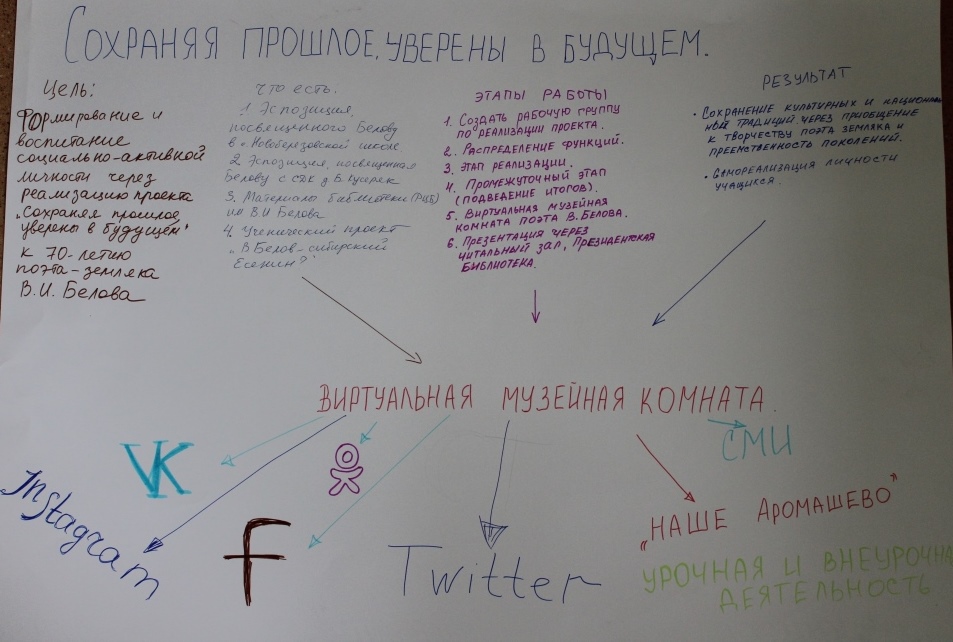 СОХРАНЯЯ ПРОШЛОЕ, УВЕРЕНЫ В БУДУЩЕМ.
Цель:
Формирование и
воспитание
социально-активной
личности через
реализацию проекта
„Сохраняя прошлое,
уверены в будущем"
к 70-летию
поэта-земляка
В.И. Белова
Что есть.
1. Эспозиция,
посвященного Белову
в „Новоберезовской школе.
2. Эспозиция, посвященная
Белову с сдк д Б. Кусеряк
3. Материалы библиотеки (РЦБ)
им В.И Белова
4 Ученический проект
„В Белов-сибирский
Есенин?"
ЭТАПЫ РАБОТЫ
1. Создать рабочую группу
по реализации проекта.
2. Распределение функций.
3. Этап реализации.
4. Промежуточный этап
(подведение итогов).
5. Виртуальная музейная
комната поэта В. Белова.
6. Презентация через
читальный зал, Президентская
библиотека.
РЕЗУЛЬТАТ
• Сохранение культурных и национальн
ный традиций через приобщение
к творчеству поэта земляка и
преемственность поколений.
• Самореализация личности
учащихся.
ВИРТУАЛЬНАЯ МУЗЕЙНАЯ КОМНАТА.
VK
СМИ
Instagram
F
Twitter
„НАШЕ АРОМАШЕВО"
УРОЧНАЯ И ВНЕУРОЧНА
ДЕЯТЕЛЬНОСТЬ